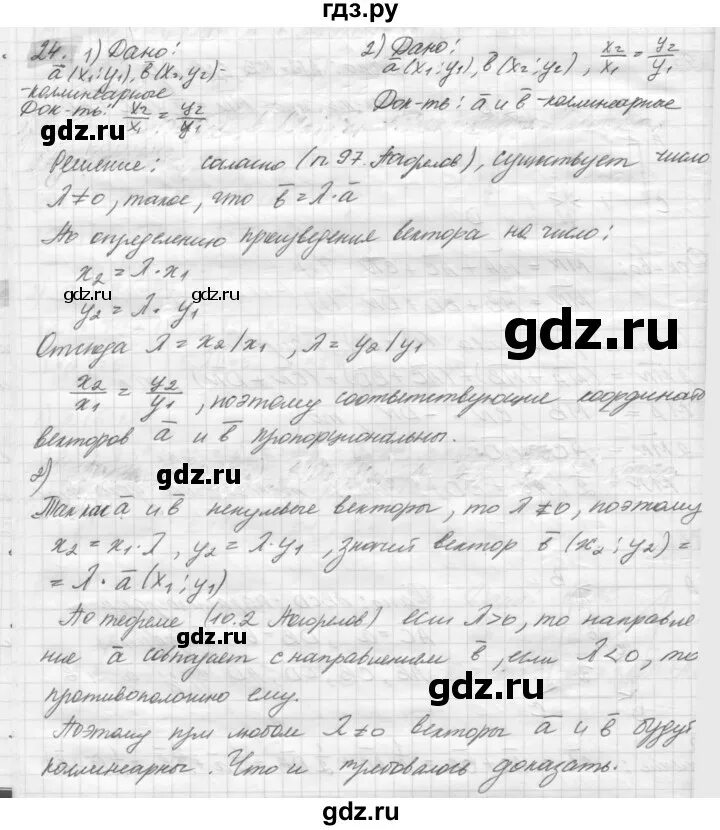 гдз.ру
24. 1) Дано:
a̅ (x₁; y₁), b̅ (x₂, y₂) –
коллинеарные
Док-ть: x₂/x₁ = y₂/y₁
2) Дано:
a̅ (x₁; y₁), b̅ (x₂; y₂), x₂/x₁ = y₂/y₁
Док-ть: a̅ и b̅ – коллинеарные
gdz.ru
gdz.ru
Решение: согласно (п 97 Погорелов), существует число
λ ≠ 0, такое, что b̅ = λ · a̅
По определению произведения вектора на число:
x₂ = λ · x₁
gdz.ru
gdz.ru
y₂ = λ · y₁
gdz.ru
Отсюда λ = x₂/x₁, λ = y₂/y₁
x₂/x₁ = y₂/y₁, поэтому соответствующие координаты
векторов a̅ и b̅ пропорциональны.
gdz.ru
2)
Так как a̅ и b̅ ненулевые векторы, то λ ≠ 0, поэтому
x₂ = x₁ · λ, y₂ = λ · y₁, значит вектор b̅ (x₂; y₂) =
gdz.ru
= λ · a̅ (x₁; y₁)
По теореме (10.2 Погорелов) если λ > 0, то направле
gdz.ru
ние a̅ совпадает с направлением b̅, если λ < 0, то
противоположно ему.
gdz.ru
Поэтому при любом λ ≠ 0 векторы a̅ и b̅ будут
коллинеарны. Что и требовалось доказать.
gdz.ru
gdz.ru